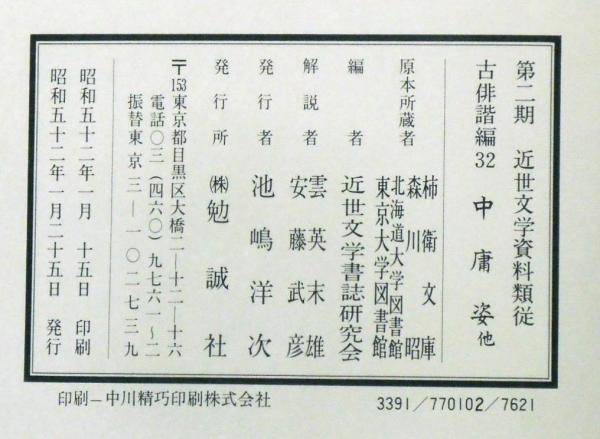 第二期 近世文学資料類従
古俳諧編32 中庸姿他
原本所蔵者 柿衛文庫
森川昭
北海道大学図書館
東京大学図書館
編者 近世文学書誌研究会
解説者 雲英末雄
安藤武彦
発行者 池嶋洋次
発行所 ㈱勉誠社
〒153東京都目黒区大橋二―十二―十六
電話〇三(四六〇)九七六一~二
振替東京三―一〇二七三九
昭和五十二年一月 十五日 印刷
昭和五十二年一月二十五日 発行
印刷―中川精巧印刷株式会社
3391/770102/7621